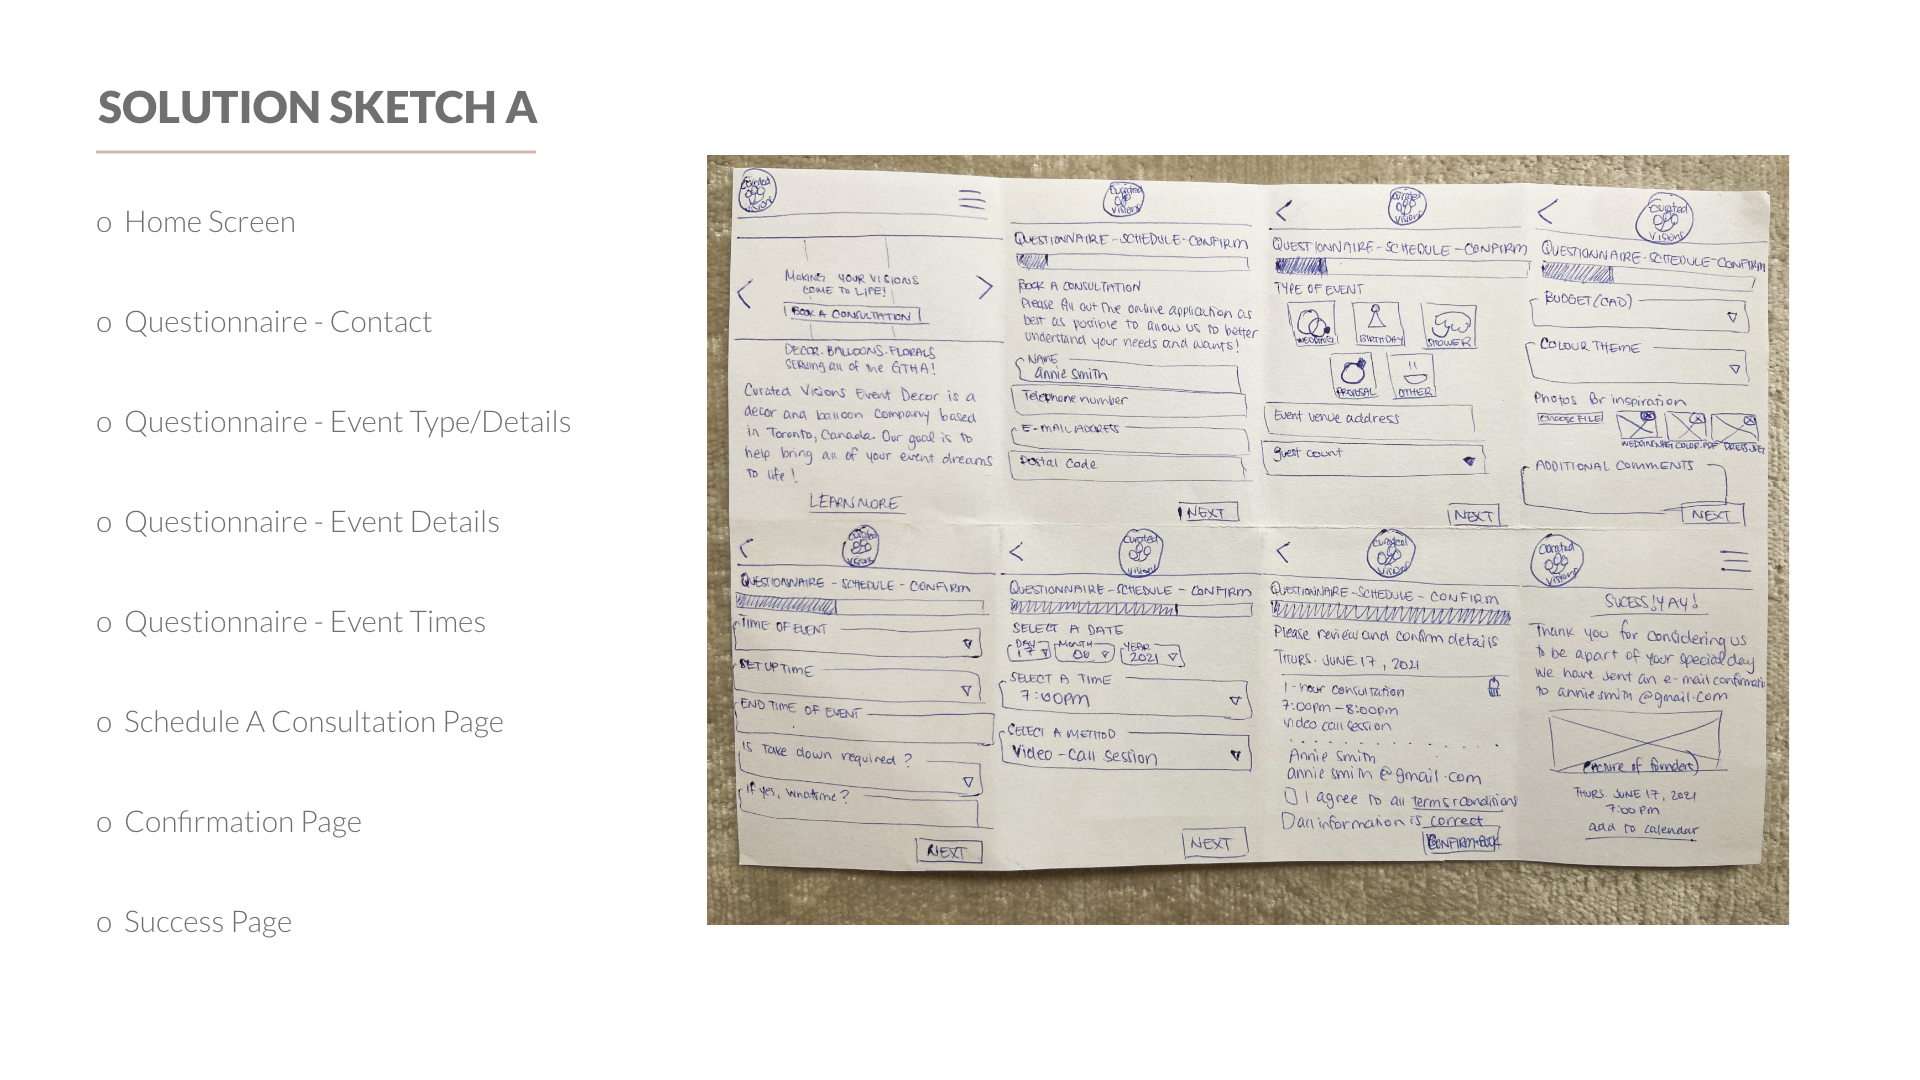 SOLUTION SKETCH A
o Home Screen
o Questionnaire - Contact
o Questionnaire - Event Type/Details
o Questionnaire - Event Details
o Questionnaire - Event Times
o Schedule A Consultation Page
o Confirmation Page
o Success Page
Curated
Visions
MAKING YOUR VISIONS
COME TO LIFE!
BOOK A CONSULTATION
DECOR. BALLOONS. FLORALS
SERVING all of the GTHA!
Curated Visions Event Decor is a
decor and balloon company based
in Toronto, Canada. Our goal is to
help bring all of your event dreams
to life!
LEARN MORE
Curated
Visions
QUESTIONNAIRE - SCHEDULE - CONFIRM
BOOK A CONSULTATION
Please fill out the online application as
best as possible to allow us to better
understand your needs and wants!
NAME
annie smith
Telephone number
E-MAIL ADDRESS
Postal Code
NEXT
<
Curated
Visions
QUESTIONNAIRE - SCHEDULE - CONFIRM
TYPE OF EVENT
WEDDING
BIRTHDAY
SHOWER
PROPOSAL
OTHER
Event venue address
guest count
NEXT
<
Curated
Visions
QUESTIONNAIRE - SCHEDULE - CONFIRM
BUDGET (CAD)
COLOUR THEME
Photos for inspiration
CHOOSE FILE
COLOR.PDF
ADDITIONAL COMMENTS
NEXT
<
Curated
Visions
QUESTIONNAIRE - SCHEDULE - CONFIRM
TIME OF EVENT
SET UP TIME
END TIME OF EVENT
Is take down required?
If yes, what time?
NEXT
<
Curated
Visions
QUESTIONNAIRE - SCHEDULE - CONFIRM
SELECT A DATE
DAY MONTH YEAR
17 06 2021
SELECT A TIME
7:00pm
SELECT A METHOD
Video-call session
NEXT
<
Curated
Visions
QUESTIONNAIRE - SCHEDULE - CONFIRM
Please review and confirm details
THURS. JUNE 17, 2021
1-hour consultation
7:00pm - 8:00pm
video call session
Annie Smith
annie smith @gmail.com
I agree to all terms + conditions
all information is correct
CONFIRM + BOOK
Curated
Visions
SUCESS! YAY!
Thank you for considering us
to be apart of your special day
We have sent an e-mail confirmatio
to annie smith @gmail.com
(picture of founders)
THURS. JUNE 17, 2021
7:00 pm
add to calendar